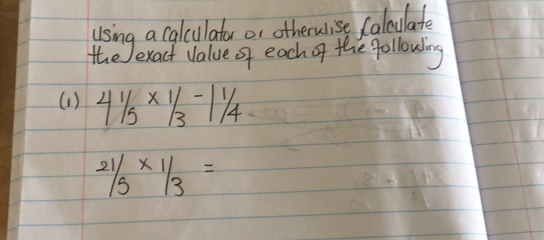 Using a calculator or otherwise Calculate
the exact value of each of the following
(1) 4 1/5 × 1/3 - 1 1/4
21/5 × 1/3 =